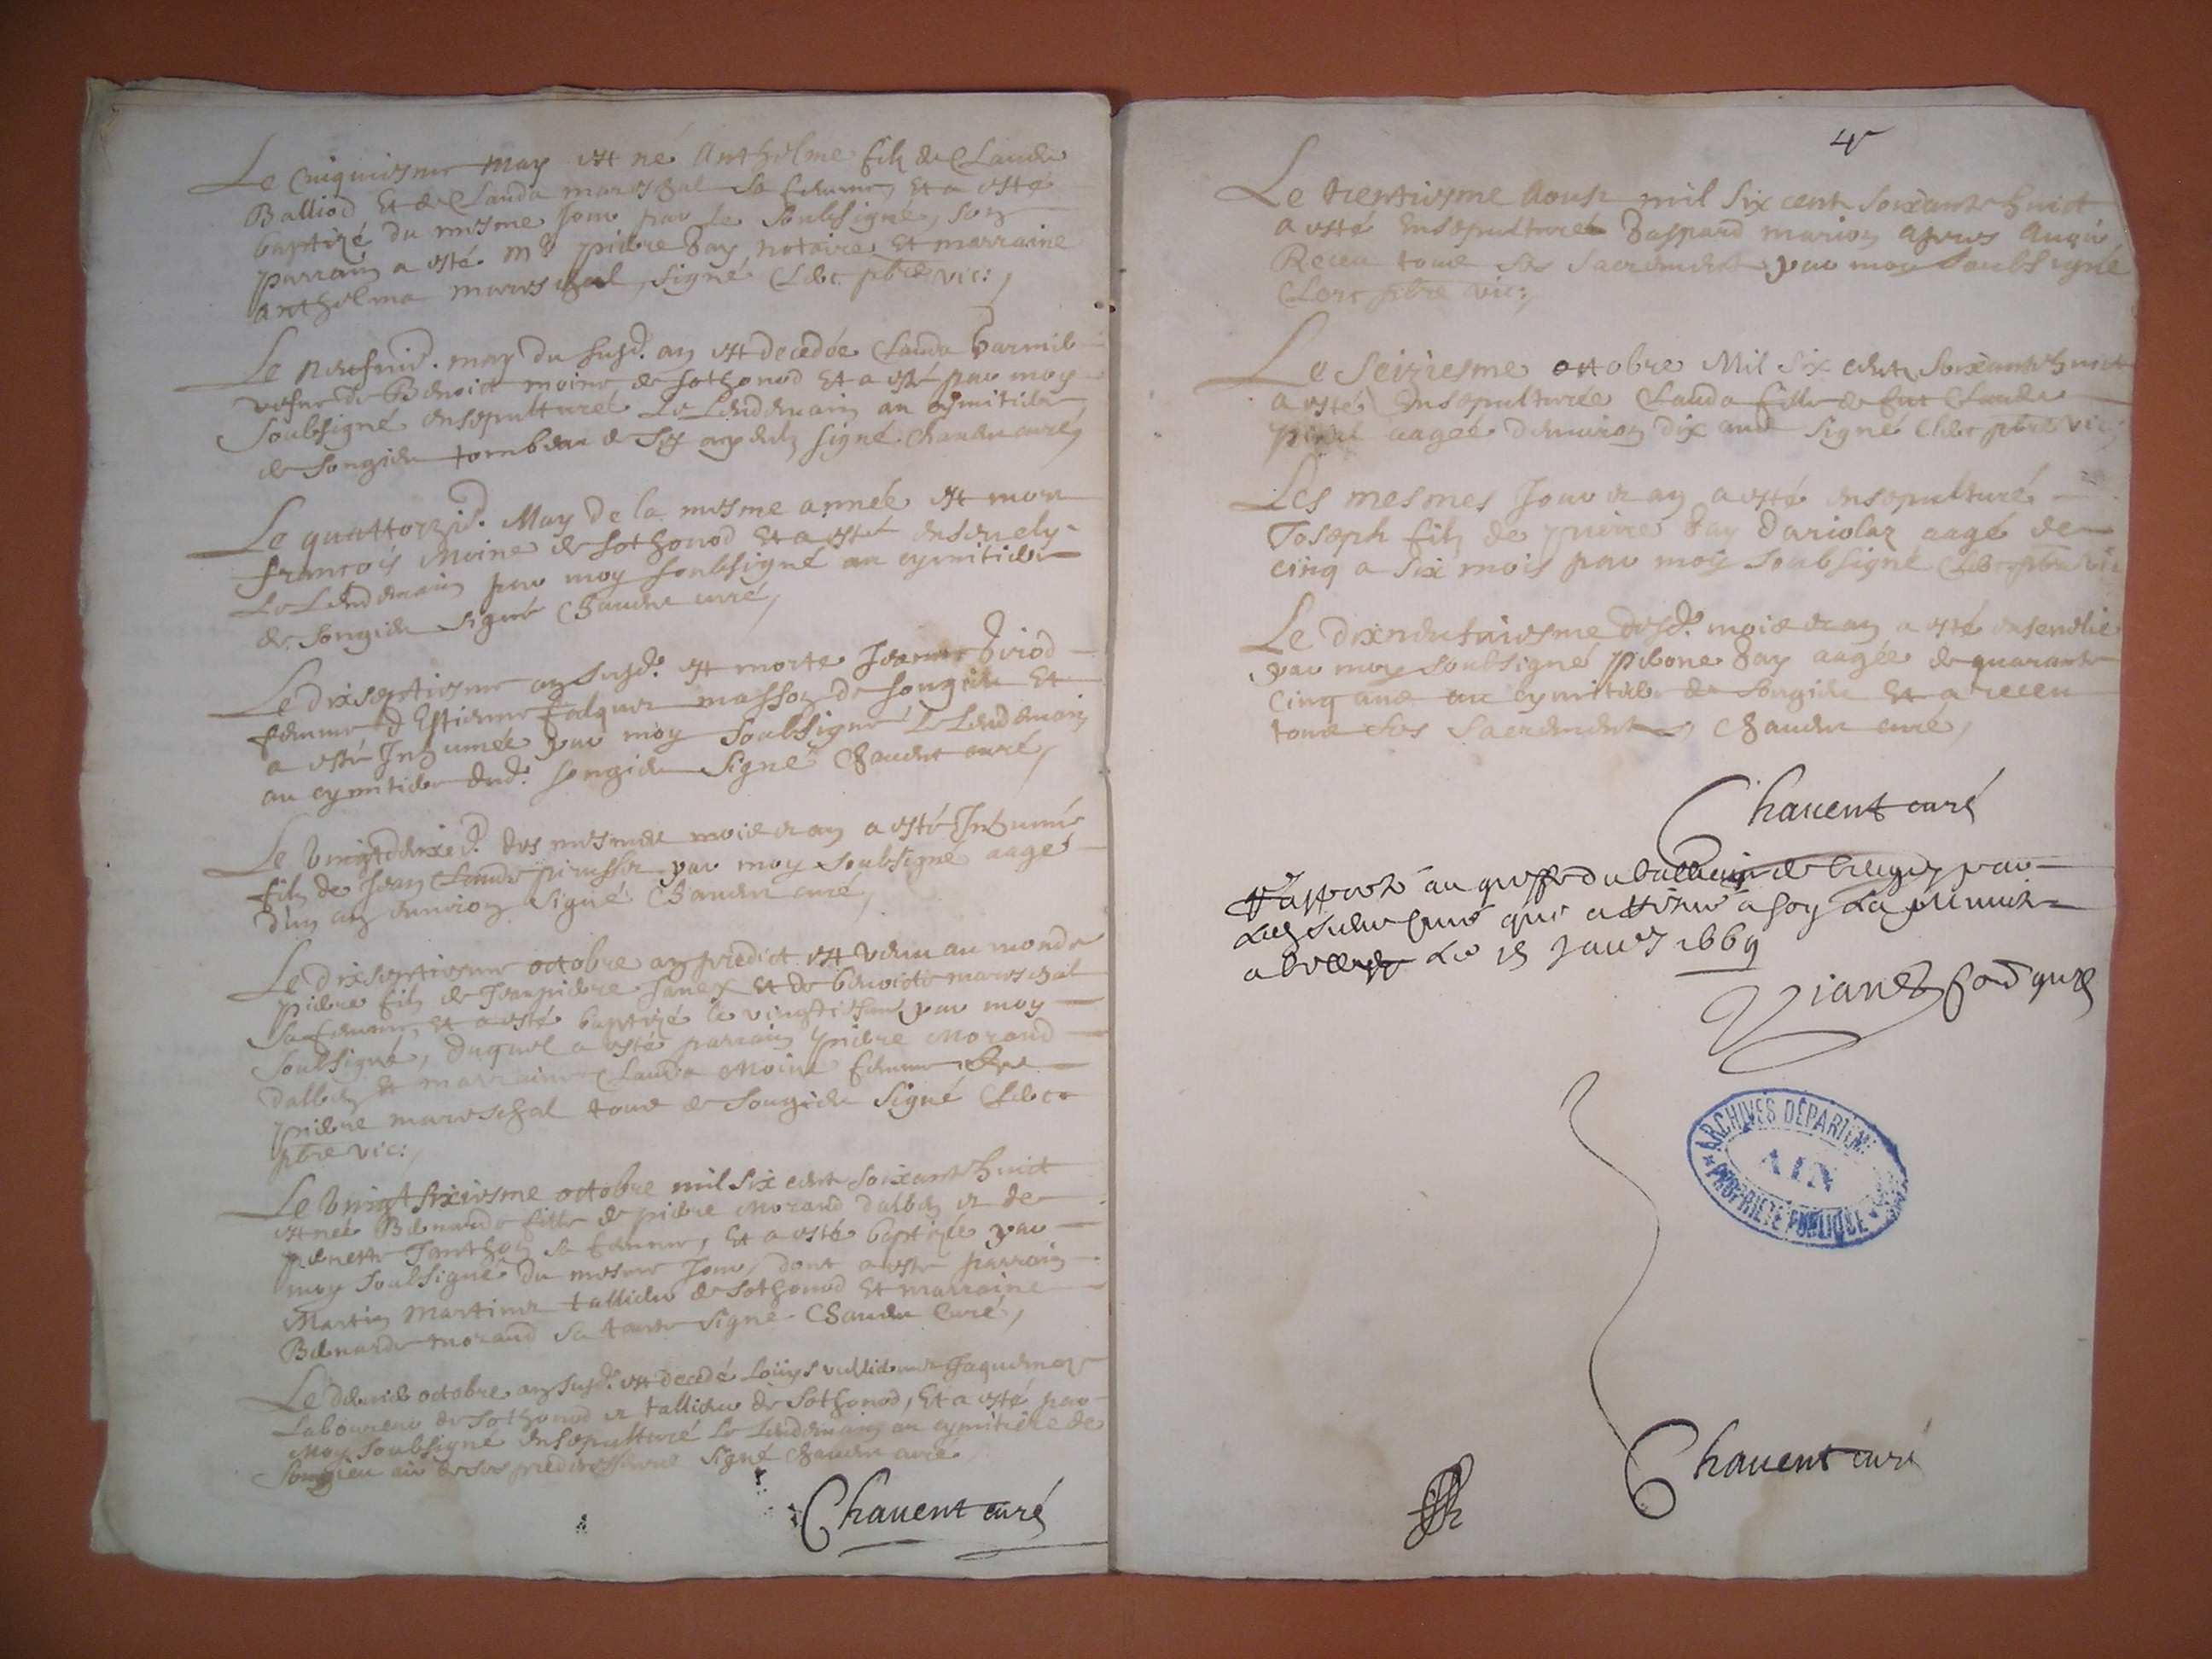 Le cinquiesme may est né Anthelme filz de Claude
Balliod et de Clauda mareschal sa femme, et a esté
baptizé du mesme jour par le soubsigné, son
parrain a esté Mr pierre Bay notaire et marraine
anthelma mareschal, signé Clerc pbre vic:,
Le neufvid. may du susd. an est decedée Clauda
vefve de Benoict moine de sothonod et a esté par moy
soubsigné ensepulturée le lendemain au cymitiere
de songieu tombeau de ses signé Chavent curé,
Le quattorzid. May de la mesme année est mort
francois Moine de sothonod et a esté ensevely
le lendemain par moy soubsigné au cymitiere
de songieu signé Chavent curé,
Le dixseptiesme an susd. est morte Jeanne
femme d'Estienne masson de songieu et
a esté Inhumée par moy soubsigné le lendemain
au cymitiere dud. songieu signé Chavent curé,
Le vingtdeuxied. des mesmes mois et an a esté Inhumé
filz de Jean Claude par moy soubsigné aagé
d'un an environ signé Chavent curé,
Le dixseptiesme octobre an predict est venu au monde
pierre filz de Jeanpierre Janex et de benoiste mareschal
sa femme, et a esté baptizé le vingtiesme par moy
soubsigné, duquel a esté parrain pierre Morand
dalben et marraine Clauda Moine femme de
pierre mareschal tous de songieu signé Clerc
pbre vic:,
Le vingt sixiesme octobre mil six cent soixante huict
est née Bernarde fille de pierre Morand dalben et de
pernette Janthon sa femme, et a esté baptizée par
moy soubsigné du mesme jour, dont a esté parrain
Martin Martiner tallieur de sothonod et marraine
Bernarde morand sa tante signé Chavent Curé,
Le dernier octobre an susd. est decedé Loüys
Laboureur de sothonod et tallieur de sothonod, et a esté par
Moy soubsigné ensepulturé le lendemain au cymitiere de
songieu de ses predecesseurs signé Chavent curé
Chavent curé
4
Le trentiesme Aoust mil six cent soixante huict
a esté ensepulturé Gaspard marion apres avoir
Receu tous ses sacrements par moy soubsigné
Clerc pbre vic:,
Le seiziesme octobre Mil six cent soixante huict
a esté ensepulturée Clauda fille de feu Claude
aagée d'environ dix ans signé Clerc pbre vic:
Les mesmes Jour et an a esté ensepulturé
Joseph filz de pierre Bay dariolaz aagé de
cinq a six mois par moy soubsigné Clerc pbre vic
Le dixneufviesme desd. mois et an a esté ensevelie
par moy soubsigné Bay aagée de quarante
Cinq ans au cymitiere de songieu et a receu
tous ses sacrements, Chavent curé,
Chavent curé
Rapporté au greffe du balliage de bugey par
led sieur Curé qui a retiré a soy la minute
a belley le 15 Janver 1669
Chavent curé
ARCHIVES DÉPARTEM
AIN
PROPRIETE PUBLIQUE